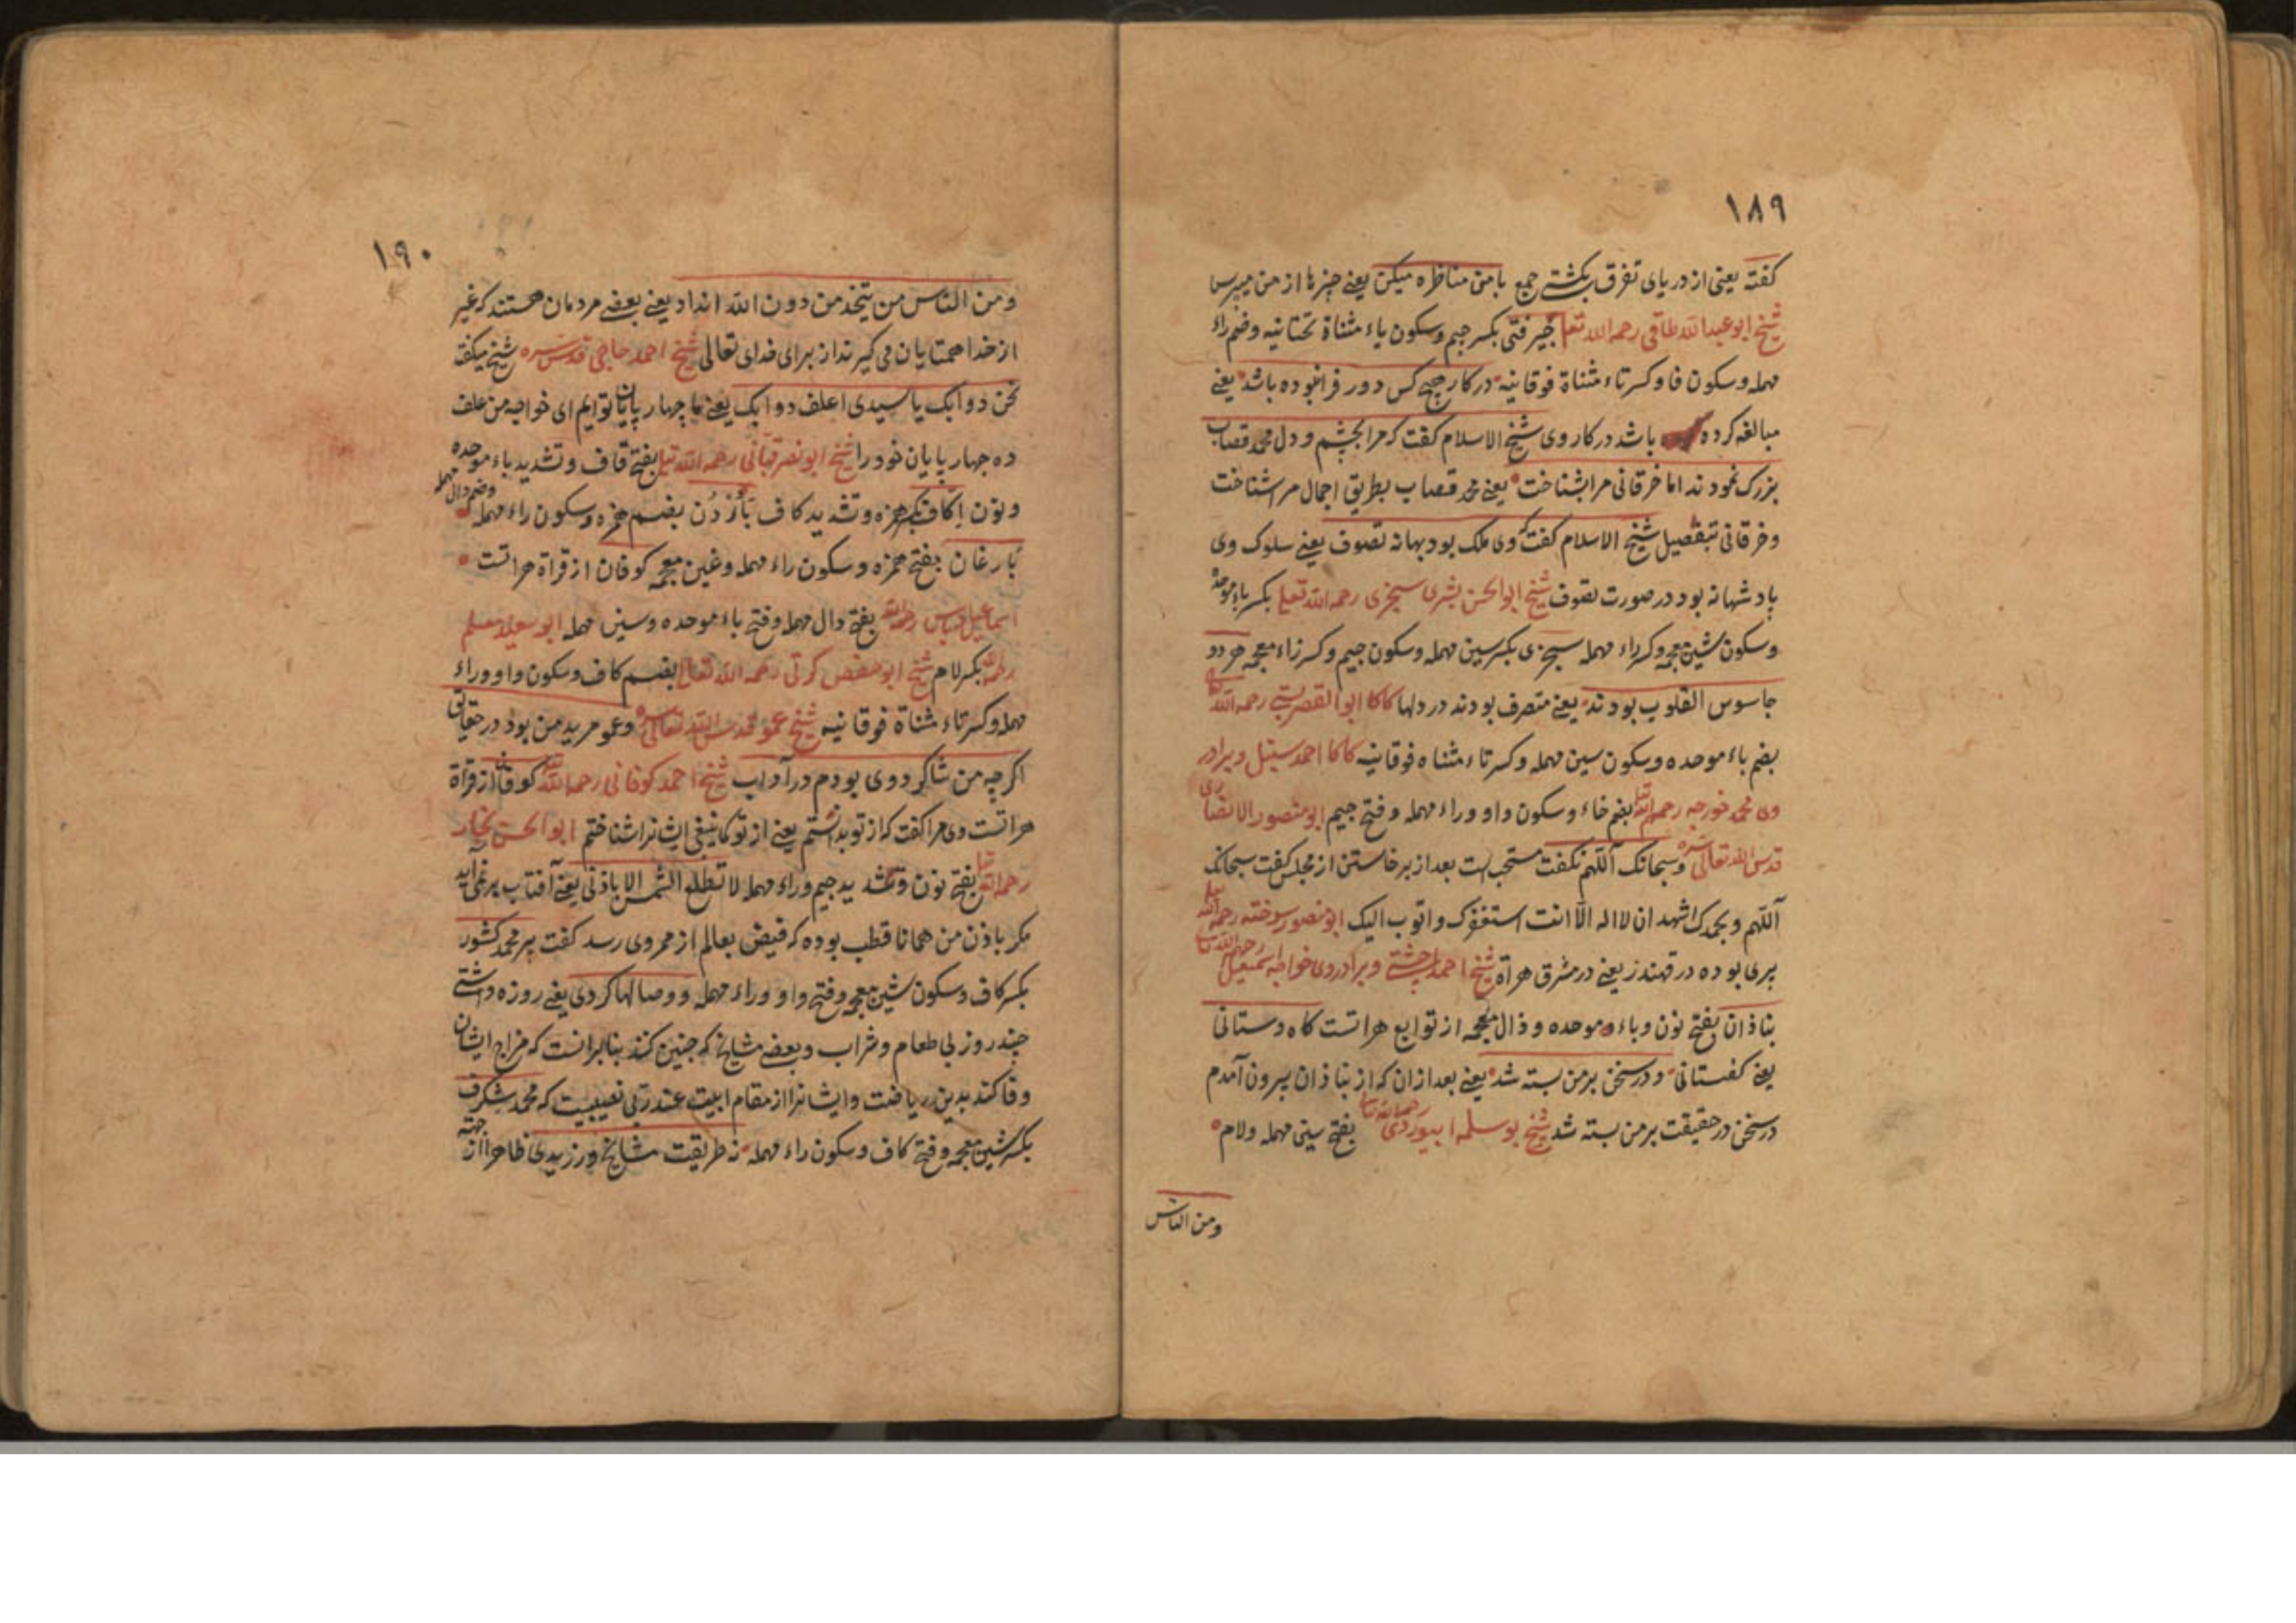 ۱۸۹
کفته یعنی از دریای تفرق بکشتی جمع با من مناظره میکن یعنی چیزها از من میپرس
شیخ ابو عبدالله طاقی رحمه الله تعا جیرفتی بکسر جیم وسکون یاء مثناة تحتانیه وضم راء
مهمله وسکون فا وکسر تاء مثناة فوقانیه در کار جهی کس دور فرانبوده باشد یعنی
مبالغه کرده باشد در کار وی شیخ الاسلام کفت که مرا بچشم و دل محمد قصاب
بزرک نمودند اما خرقانی مرا بشناخت یعنی محمد قصاب بطریق اجمال مرا شناخت
وخرقانی بتفصیل شیخ الاسلام کفت که وی ملک بود بهانه تصوف یعنی سلوک وی
بادشهانه بود در صورت تصوف شیخ ابو الحسن بشری سجزی رحمه الله تعلی بکسر باء موحده
وسکون شین معجمه وکسر راء مهمله سجزی بکسر سین مهمله وسکون جیم وکسر زاء معجمه هر دو
جاسوس القلوب بودند یعنی متصرف بودند در دلها کاکا ابو القصر بستی رحمه الله تعا
بضم باء موحده وسکون سین مهمله وکسر تاء مثناه فوقانیه کاکا احمد سنبل وبرادر
وی محمد خورجه رحمهم الله تعا بضم خاء وسکون واو وراء مهمله وفتح جیم ابو منصور الانصاری
قدس الله تعالی سره وسبحانک اللهم نکفت مستحب است بعد از برخاستن از مجلس کفت سبحانک
اللهم وبحمدک اشهد ان لا اله الا انت استغفرک واتوب الیک ابو منصور سوخته رحمه الله تعلی
پری بوده در قهندز یعنی در مشرق هراة شیخ احمد چشتی وبرادر وی خواجه اسمعیل رحمهما الله تعا
بناذان بفتح نون وباء موحده وذال معجمه از توابع هراتست کاه دستانی
یعنی کفستانی ودر سخن بر من بسته شد یعنی بعد از ان که از بناذان بیرون آمدم
در سخن در حقیقت بر من بسته شد شیخ بو سلمه ابیوردی رحمه الله تعا بفتح سین مهمله ولام
ومن الناس
۱۹۰
ومن الناس من یتخذ من دون الله انداد یعنی بعضی مردمان هستند که غیر
از خدا همتایان می کیرند از برای خدای تعالی شیخ احمد حاجی قدس سره شیخ میکفت
نحن دوابک یا سیدی اعلف دوابک یعنی ما چهار پایان توایم ای خواجه من علف
ده چهار پایان خود را شیخ ابو نصر قبانی رحمه الله تعلی بفتح قاف وتشدید باء موحده
ونون اکاف بکسر همزه وتشدید کاف بأُرْدُن بضم همزه وسکون راء مهمله وضم دال مهمله
بارغان بفتح همزه وسکون راء مهمله وغین معجمه کوفان از قراة هراتست
اسماعیل دباس رحمه الله بفتح دال مهمله وفتح باء موحده وسین مهمله ابو سعید معلم
رحمه الله بکسر لام شیخ ابو حفص کورتی رحمه الله تعالی بضم کاف وسکون واو وراء
مهمله وکسر تاء مثناة فوقانیه شیخ عمو قدس الله تعالی سره وعمو مرید من بود در حقایق
اکرچه من شاکرد وی بودم در آداب شیخ احمد کوفانی رحمه الله تعا کوفان از قراة
هراتست وی مرا کفت که از تو بداشتم یعنی از تو کاینبغی ایشانرا شناختم ابو الحسن نجار
رحمه الله تعا بفتح نون وتشدید جیم وراء مهمله لا تطلع الشمس الا باذنی یعنی آفتاب بر نمی آید
مکر باذن من همانا قطب بوده که فیض بعالم از ممر وی رسد کفت پیر محمد کشور
بکسر کاف وسکون شین معجمه وفتح واو وراء مهمله ووصالها کردی یعنی روزه داشتی
چند روز بی طعام وشراب وبعضی مشایخ که چنین کنند بنا برانست که مزاج ایشان
وفا کند بدین ریاضت وایشانرا از مقام ابیت عند ربی نصیبیست که محمد شکرف
بکسر شین معجمه وفتح کاف وسکون راء مهمله نه طریقت مشایخ ورزیدی ظاهرا از جهة